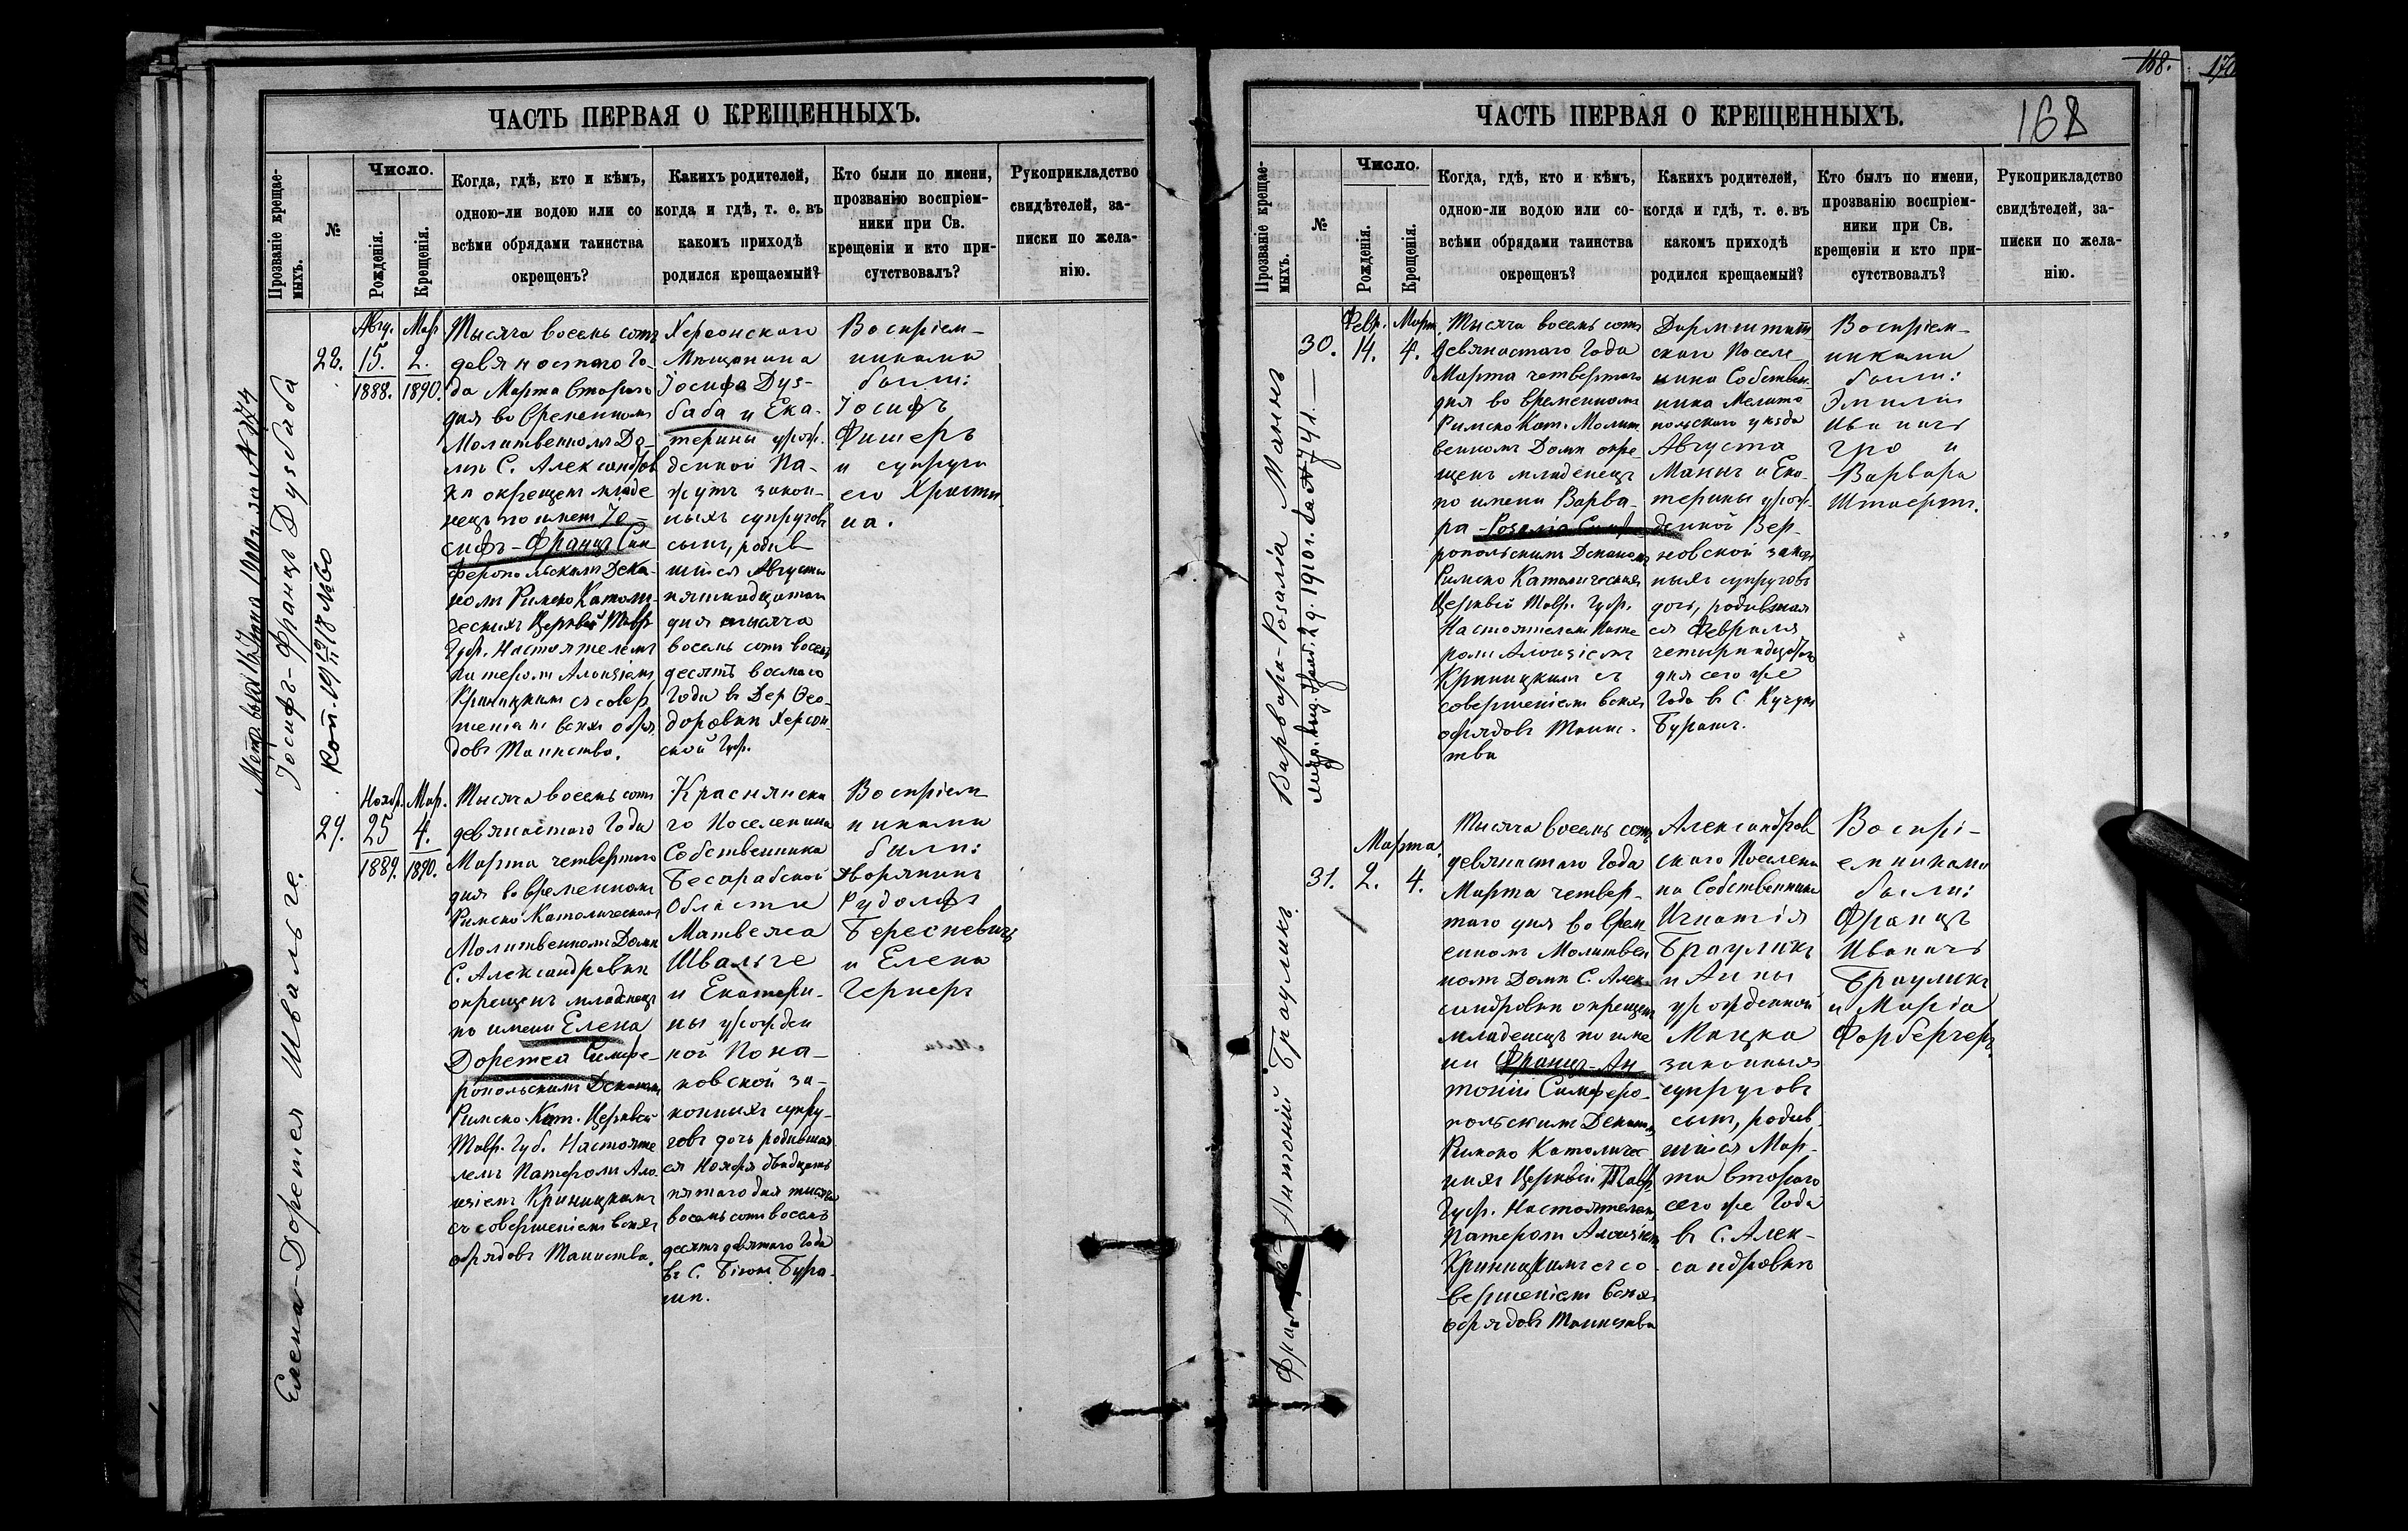 ЧАСТЬ ПЕРВАЯ О КРЕЩЕННЫХЪ.
Прозваніе крещае-
мыхъ.
№
Число.
Рожденія.
Крещенія.
Когда, гдѣ, кто и кѣмъ,
одною-ли водою или со
всѣми обрядами таинства
окрещенъ?
Какихъ родителей,
когда и гдѣ, т. е. въ
какомъ приходѣ
родился крещаемый?
Кто были по имени,
прозванію воспріем-
ники при Св.
крещеніи и кто при-
сутствовалъ?
Рукоприкладство
свидѣтелей, за-
писки по жела-
нію.
Іосифъ-Францъ Дузбаба
28.
Авгу.
15.
1888.
Мар.
2.
1890.
Тысяча восемь сотъ
девяностаго Го-
да Марта втораго
дня во временномъ
Молитвенномъ До-
мѣ С. Александров
кѣ окрещенъ младе
нецъ по имени Іо-
сифъ-Францъ Сим
феропольскимъ Дека-
номъ Римско Католи-
ческихъ Церквей Тавр.
Губ. Настоятелемъ
Патеромъ Алоизіемъ
Криницкимъ съ совер
шеніемъ всѣхъ обря
довъ Таинства.
Херсонскаго
Мѣщанина
Іосифа Дуз-
баба и Ека-
терины урож-
денной Па-
жутъ закон-
ныхъ супруговъ
сынъ, родив
шійся Августа
пятнадцатаго
дня тысяча
восемь сотъ восемь
десятъ восьмаго
Года въ Дер Ѳео-
доровкѣ Херсон-
ской Губ.
Воспріем-
никами
были:
Іосифъ
Фишеръ
и супруга
его Христи
на.
Елена-Доротея Швальге.
29.
Нояб.
25
1889.
Мар.
4.
1890.
Тысяча восемь сотъ
девяностаго Года
Марта четвертаго
дня во временномъ
Римско Католическомъ
Молитвенномъ Домѣ
С. Александровки
окрещенъ младенецъ
по имени Елена
Доротея Симфе-
ропольскимъ Деканомъ
Римско-Кат. Церквей
Тавр. Губ. Настояте
лемъ Патеромъ Ало-
изіемъ Криницкимъ
съ совершеніемъ всѣхъ
обрядовъ Таинства.
Краснянска
го Поселенина
Собственника
Бесарабской
Области
Матвеяса
Швальге
и Екатери-
ны урожден
ной Пона-
ковской за-
конныхъ супру-
говъ дочь родившая
ся Ноября двадцать
пятаго дня тысяча
восемь сотъ восемь
десятъ девятаго Года
въ С. Біюкъ Бура-
шѣ.
Воспріем
никами
были:
Дворянинъ
Рудольфъ
Бересневичъ
и Елена
Гернеръ
168.
168
ЧАСТЬ ПЕРВАЯ О КРЕЩЕННЫХЪ.
Прозваніе крещае-
мыхъ.
№
Число.
Рожденія.
Крещенія.
Когда, гдѣ, кто и кѣмъ,
одною-ли водою или со-
всѣми обрядами таинства
окрещенъ?
Какихъ родителей,
когда и гдѣ, т. е. въ
какомъ приходѣ
родился крещаемый?
Кто былъ по имени,
прозванію воспріем-
ники при Св.
крещеніи и кто при-
сутствовалъ?
Рукоприкладство
свидѣтелей, за-
писки по жела-
нію.
Варвара-Розалія Маннъ
30.
Февр.
14.
Март.
4.
Тысяча восемь сотъ
девяностаго Года
Марта четвертаго
дня во временномъ
Римско Кат. Молит
венномъ Домѣ окре-
щенъ младенецъ
по имени Варва-
ра-Розалія Симфе
ропольскимъ Деканомъ
Римско Католическихъ
Церквей Тавр. Губ.
Настоятелемъ Пате
ромъ Алоизіемъ
Криницкимъ съ
совершеніемъ всѣхъ
обрядовъ Таинс-
тва
Дармштатт
скаго Поселе-
нина Собствен
ника Мелито
польскаго уѣзда
Августа
Маннъ и Ека-
терины урож-
денной Вер-
новской закон
ныхъ супруговъ
дочь, родившая
ся Февраля
четырнадцатаго
дня сего же
Года въ С. Кучукъ
Бурашъ.
Воспріем-
никами
были:
Эмилій
Ивановъ
Гро и
Варвара
Штертъ.
Францъ-Антоній Брауликъ.
31.
Марта
2.
4.
Тысяча восемь сотъ
девяностаго Года
Марта четвер-
таго дня во врем
енномъ Молитвен
номъ Домѣ С. Алек-
сандровки окрещенъ
младенецъ по име
ни Францъ-Ан-
тоній Симферо-
польскимъ Деканомъ
Римско Католичес
кихъ Церквей Тавр.
Губ. Настоятелемъ
Патеромъ Алоизіемъ
Криницкимъ съ со-
вершеніемъ всѣхъ
обрядовъ Таинства
Александров
скаго Поселени
на Собственника
Игнатія
Брауликъ
и Анны
урожденной
Мацка
законныхъ
супруговъ
сынъ, родив
шійся Мар-
та втораго
сего же Года
въ С. Алек-
сандровкѣ
Воспрі-
емниками
были:
Францъ
Ивановъ
Брауликъ
и Марія
Форбергеръ.